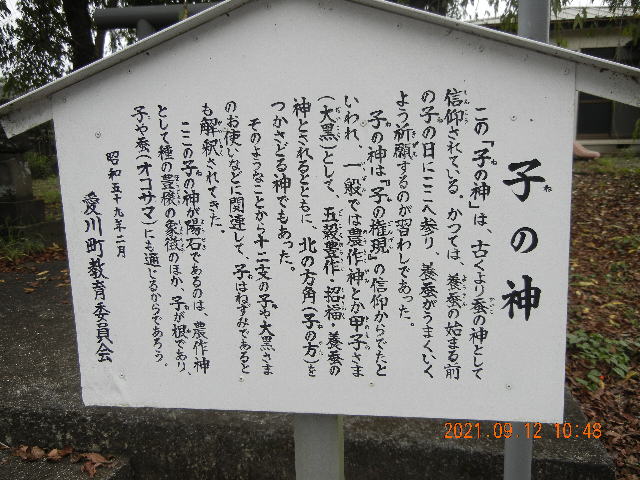 子の神
この「子の神」は、古くより蚕の神として
信仰されている。かつては、養蚕の始まる前
の子の日にここへ参り、養蚕がうまくいく
よう祈願するのが習わしであった。
子の神は『子の権現』の信仰からでたと
いわれ、一般では農作神とか甲子さま
(大黒)として、五穀豊作・招福・養蚕の
神とされるとともに、北の方角(子の方)を
つかさどる神でもあった。
そのようなことから十二支の子や大黒さま
のお使いなどに関連して、子はねずみであると
も解釈されてきた。
ここの子の神が陽石であるのは、農作神
として種の豊穣の象徴のほか、子が根であり、
子や蚕(オコサマ)にも通じるからであろう。
昭和五十九年二月
愛川町教育委員会
2021.09.12 10:48